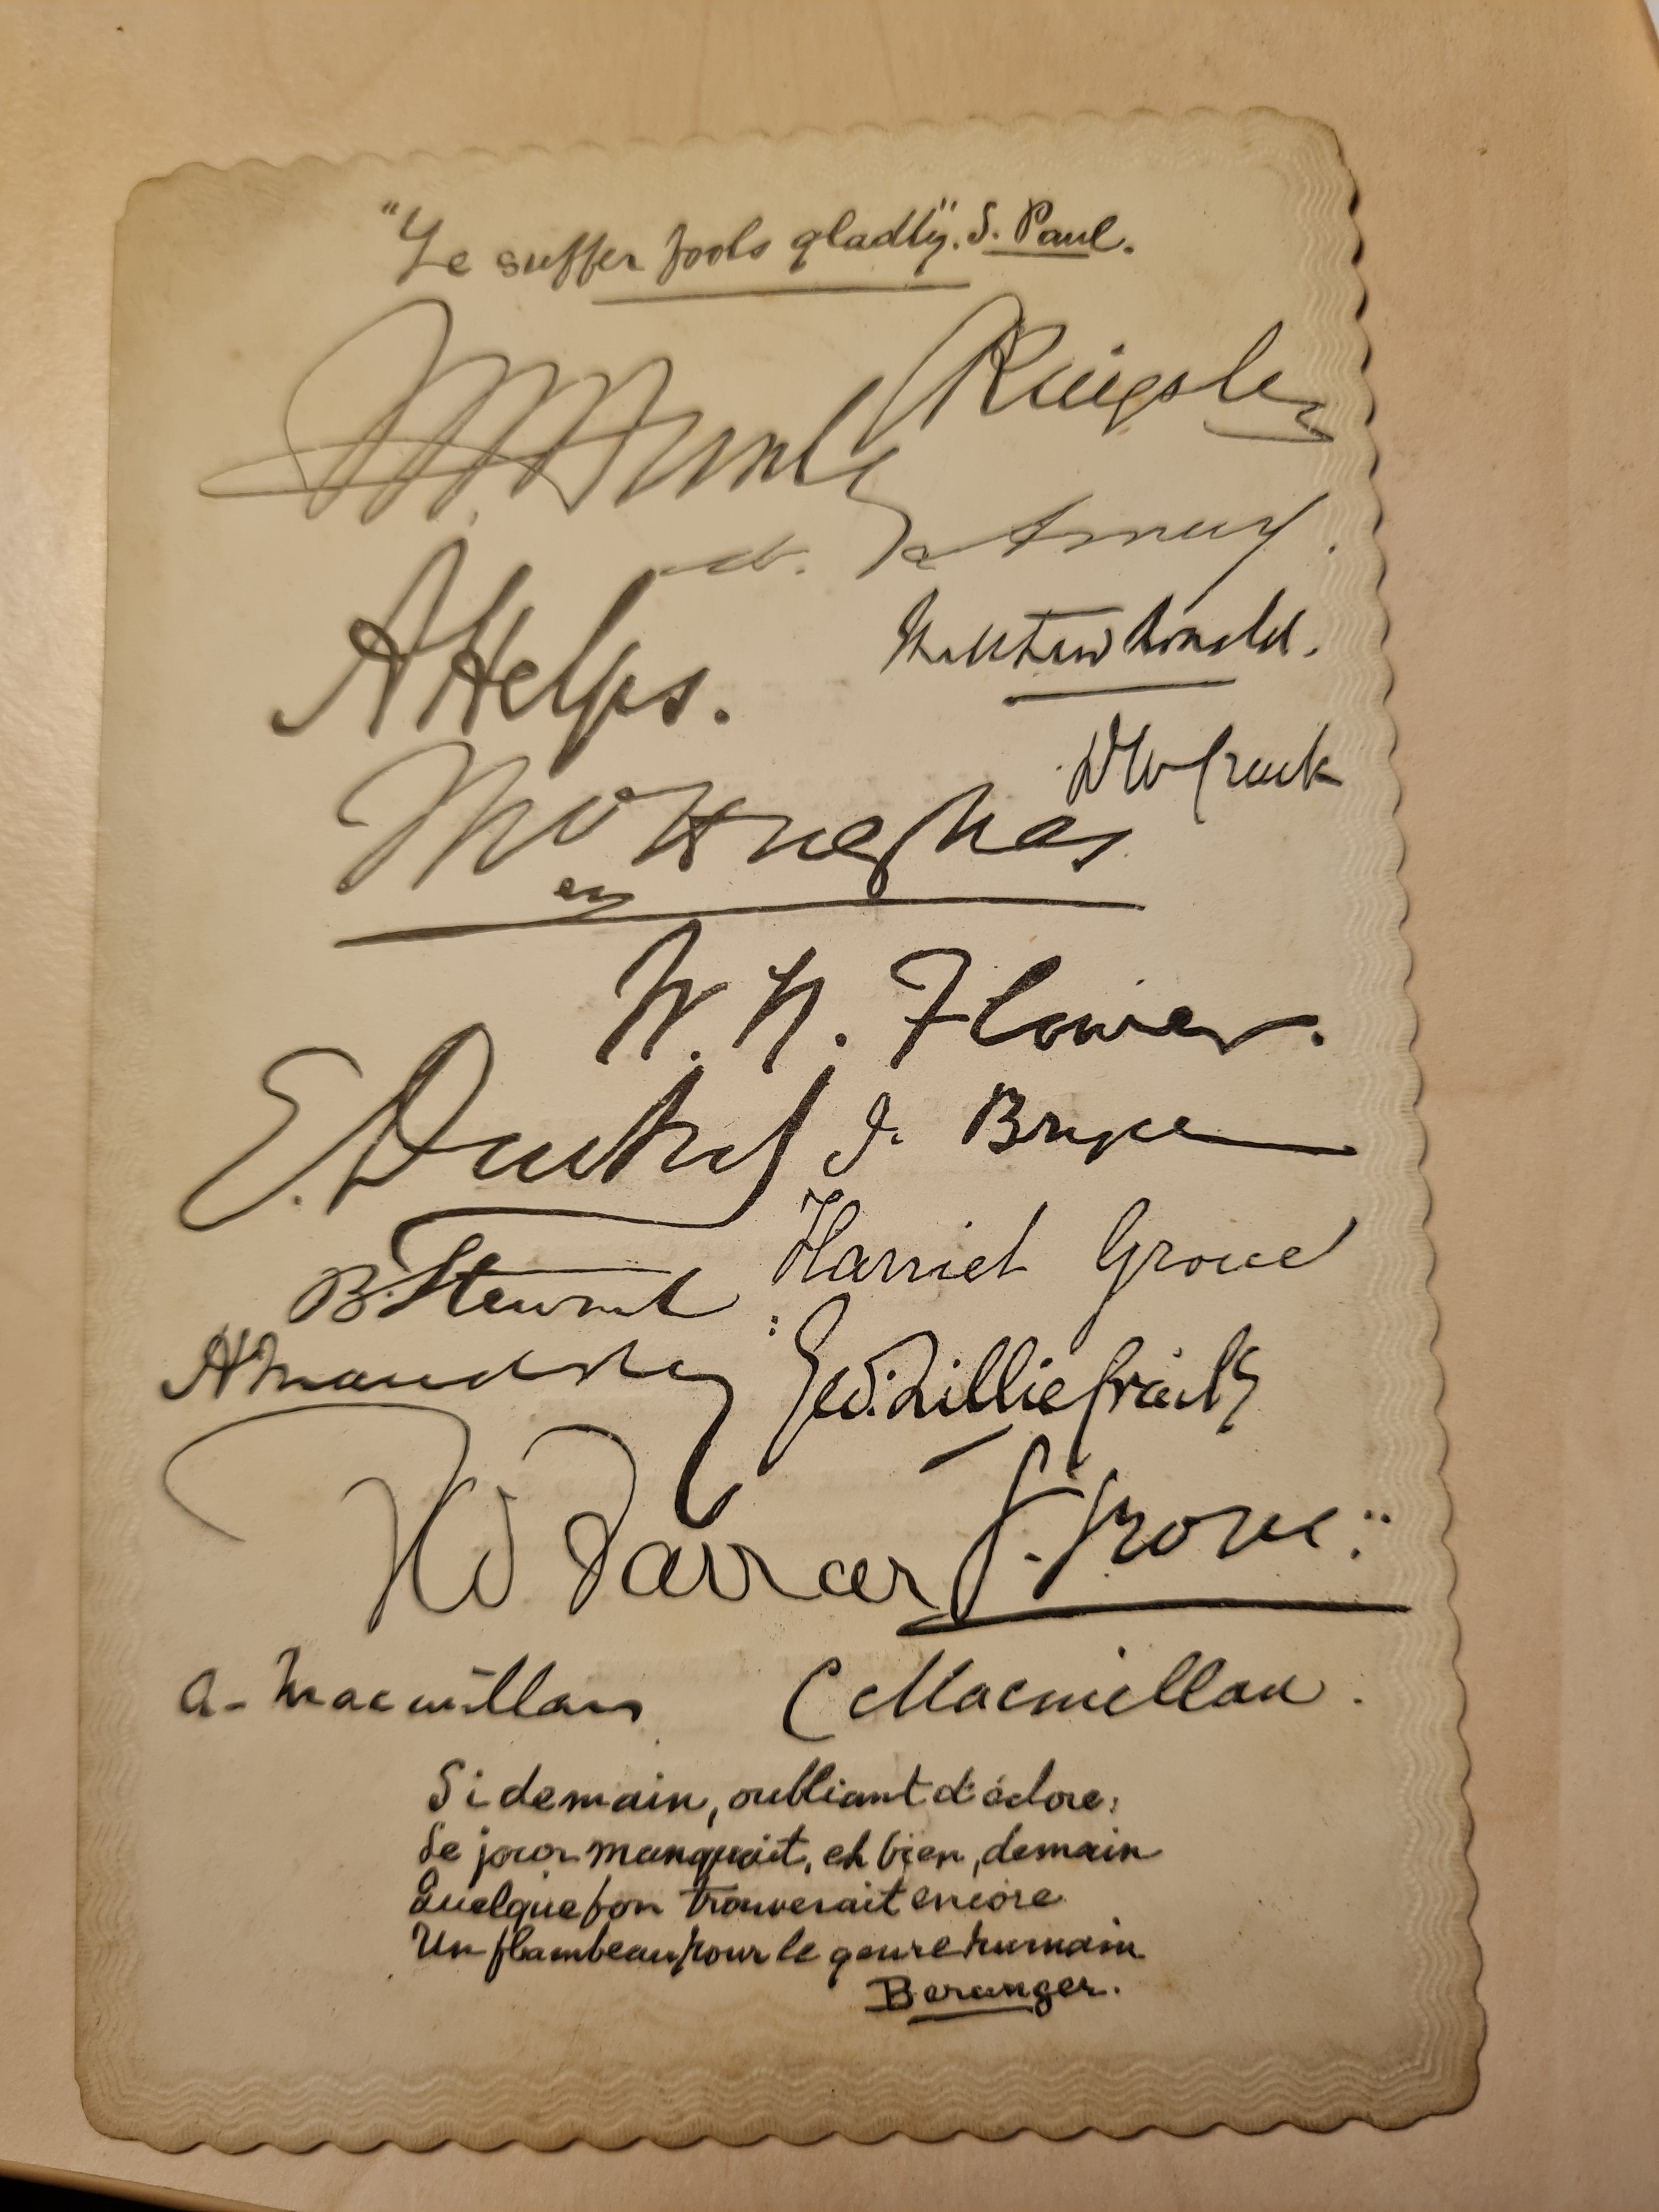 "Ye suffer fools gladly". S. Paul.
W. H. Hunt
CKingsley
A Helps.
Matthew Arnold.
Tho Hughes
W. H. Flower.
E. Deutsch
J. Bryce
Harriet Grove
B. Stewart
Geo: Lillie Craik
FW Farrar
G. Grove:
A. Macmillan
C Macmillan.
Si demain, oubliant d'éclore,
Le jour manquait, eh bien, demain
Quelque fou trouverait encore
Un flambeau pour le genre humain
Beranger.